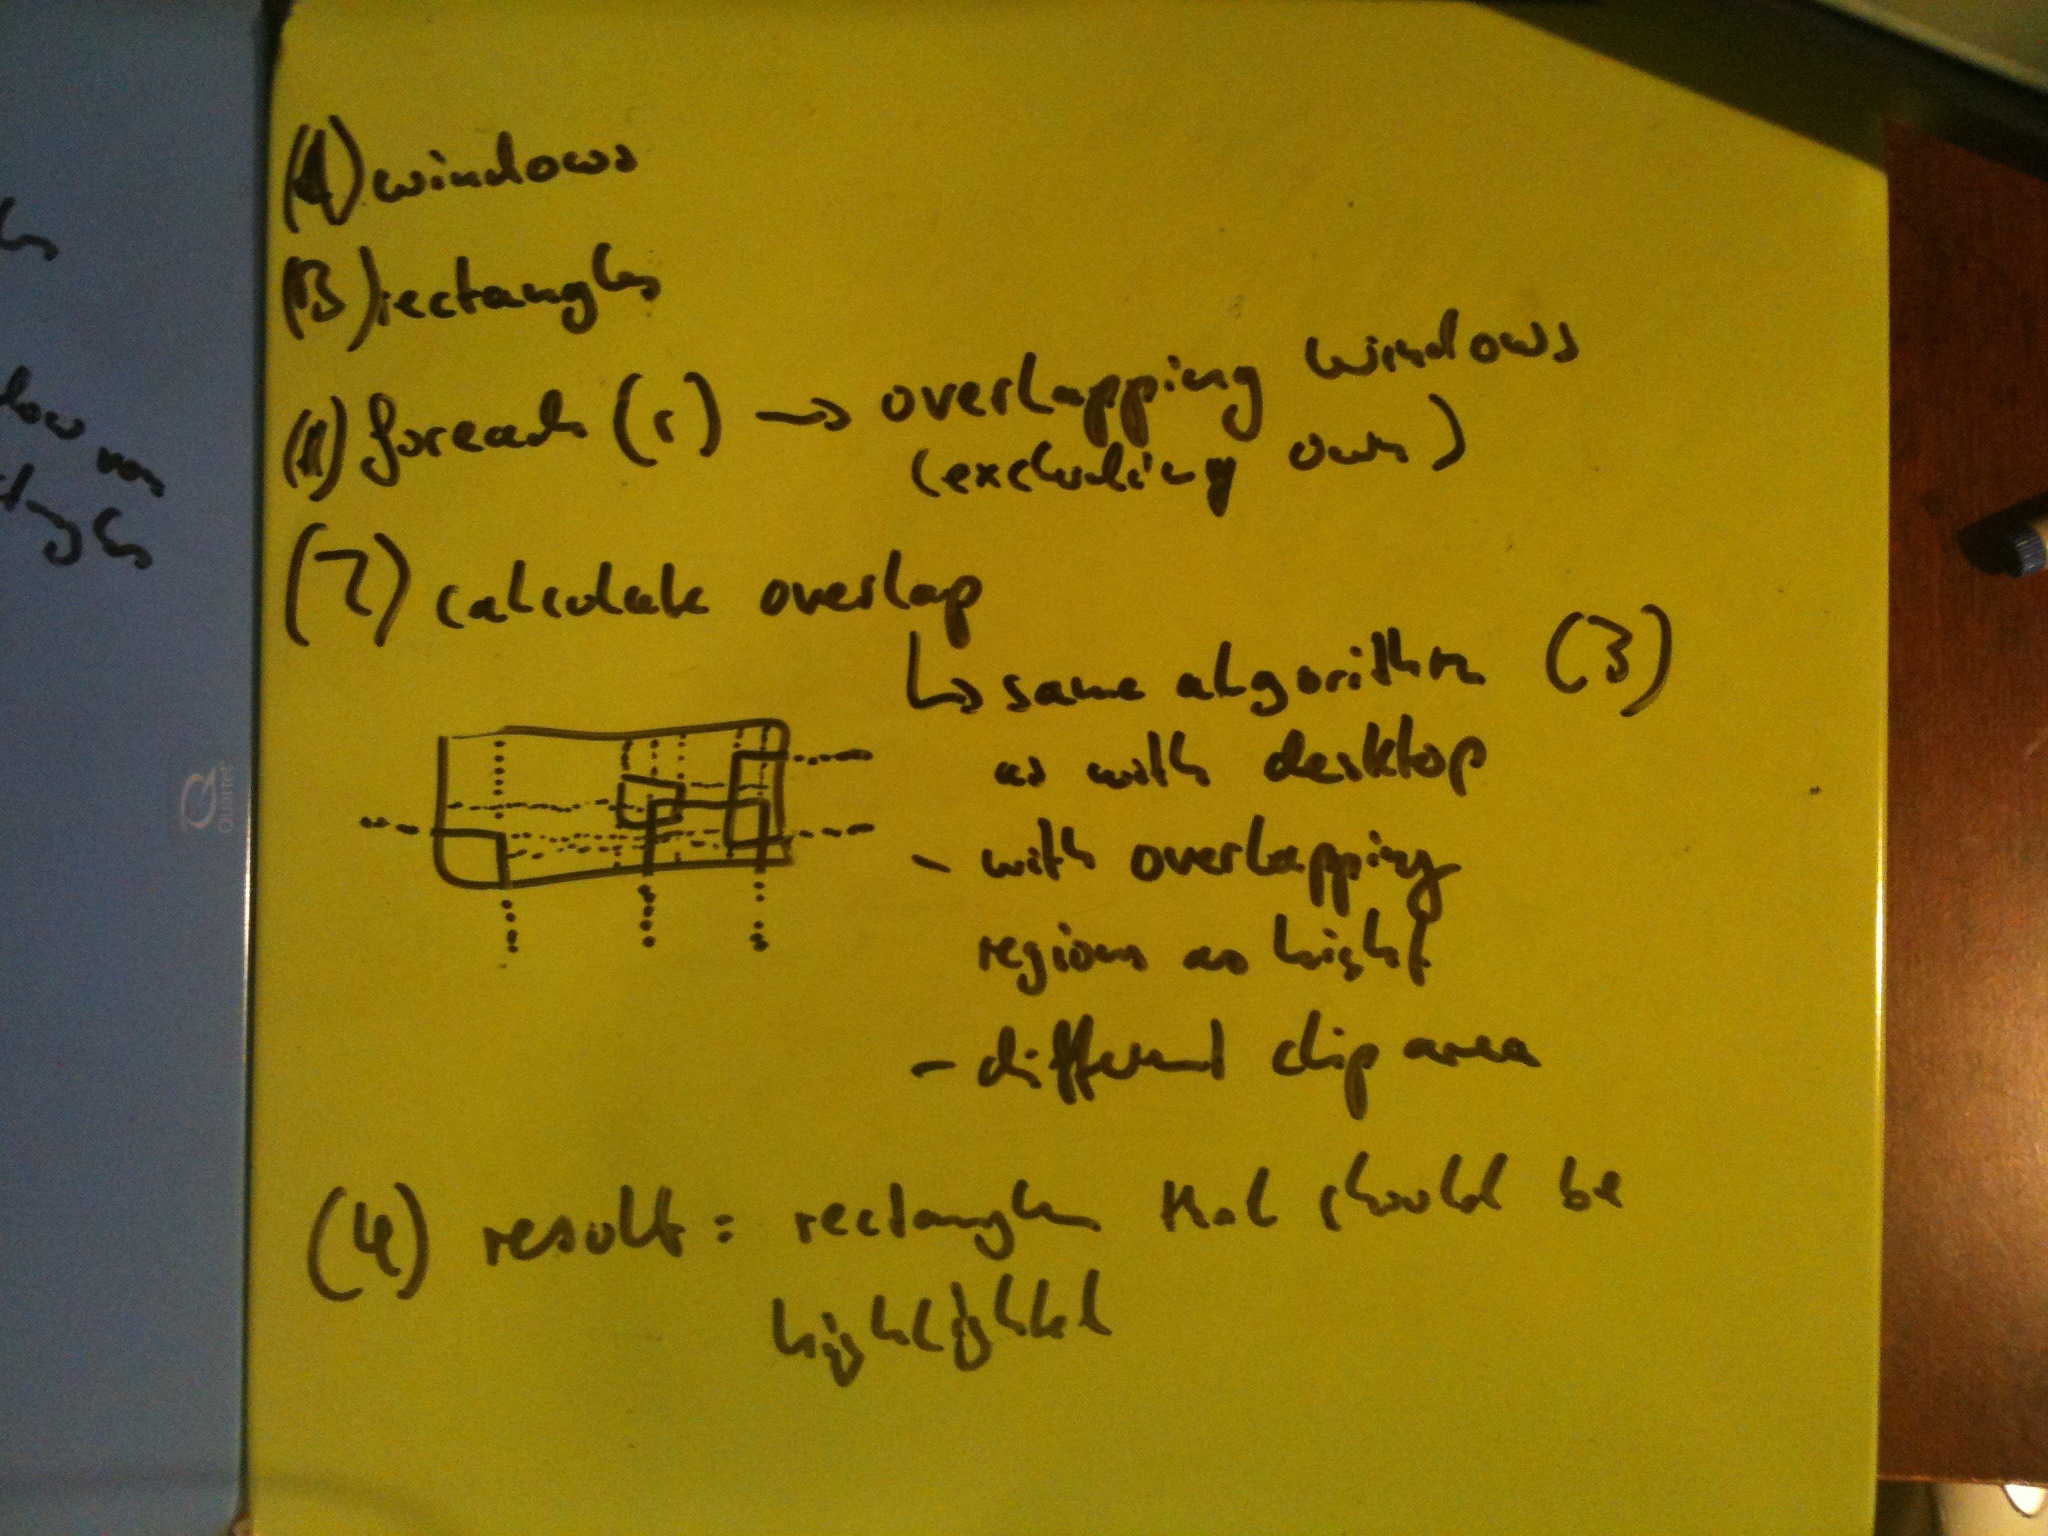 Quartet
(A) windows
(B) rectangles
(1) foreach (r) → overlapping windows
(excluding own)
(2) calculate overlap
↳ same algorithm (3)
as with desktop
- with overlapping
regions as
- different clip area
(4) result: rectangles that should be
highlighted